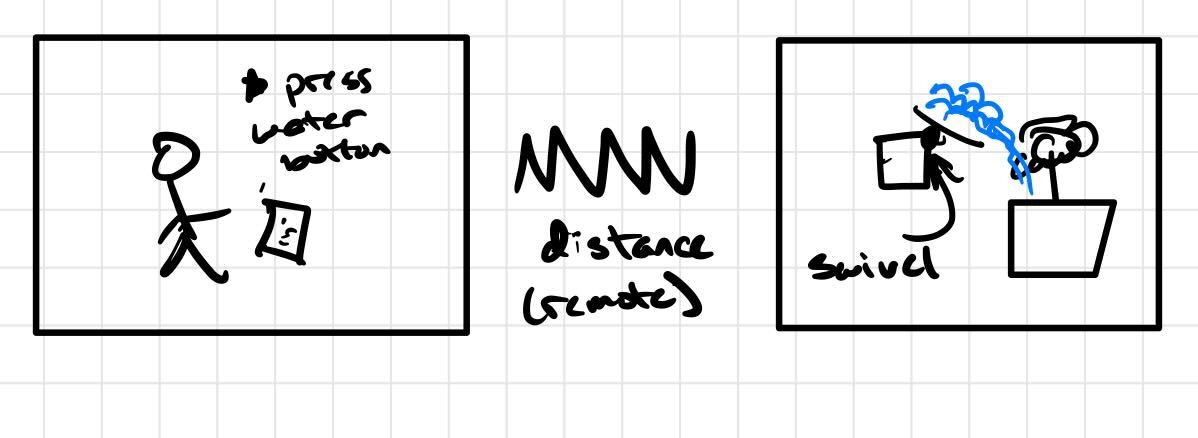 press
water
button
distance
(remote)
swivel